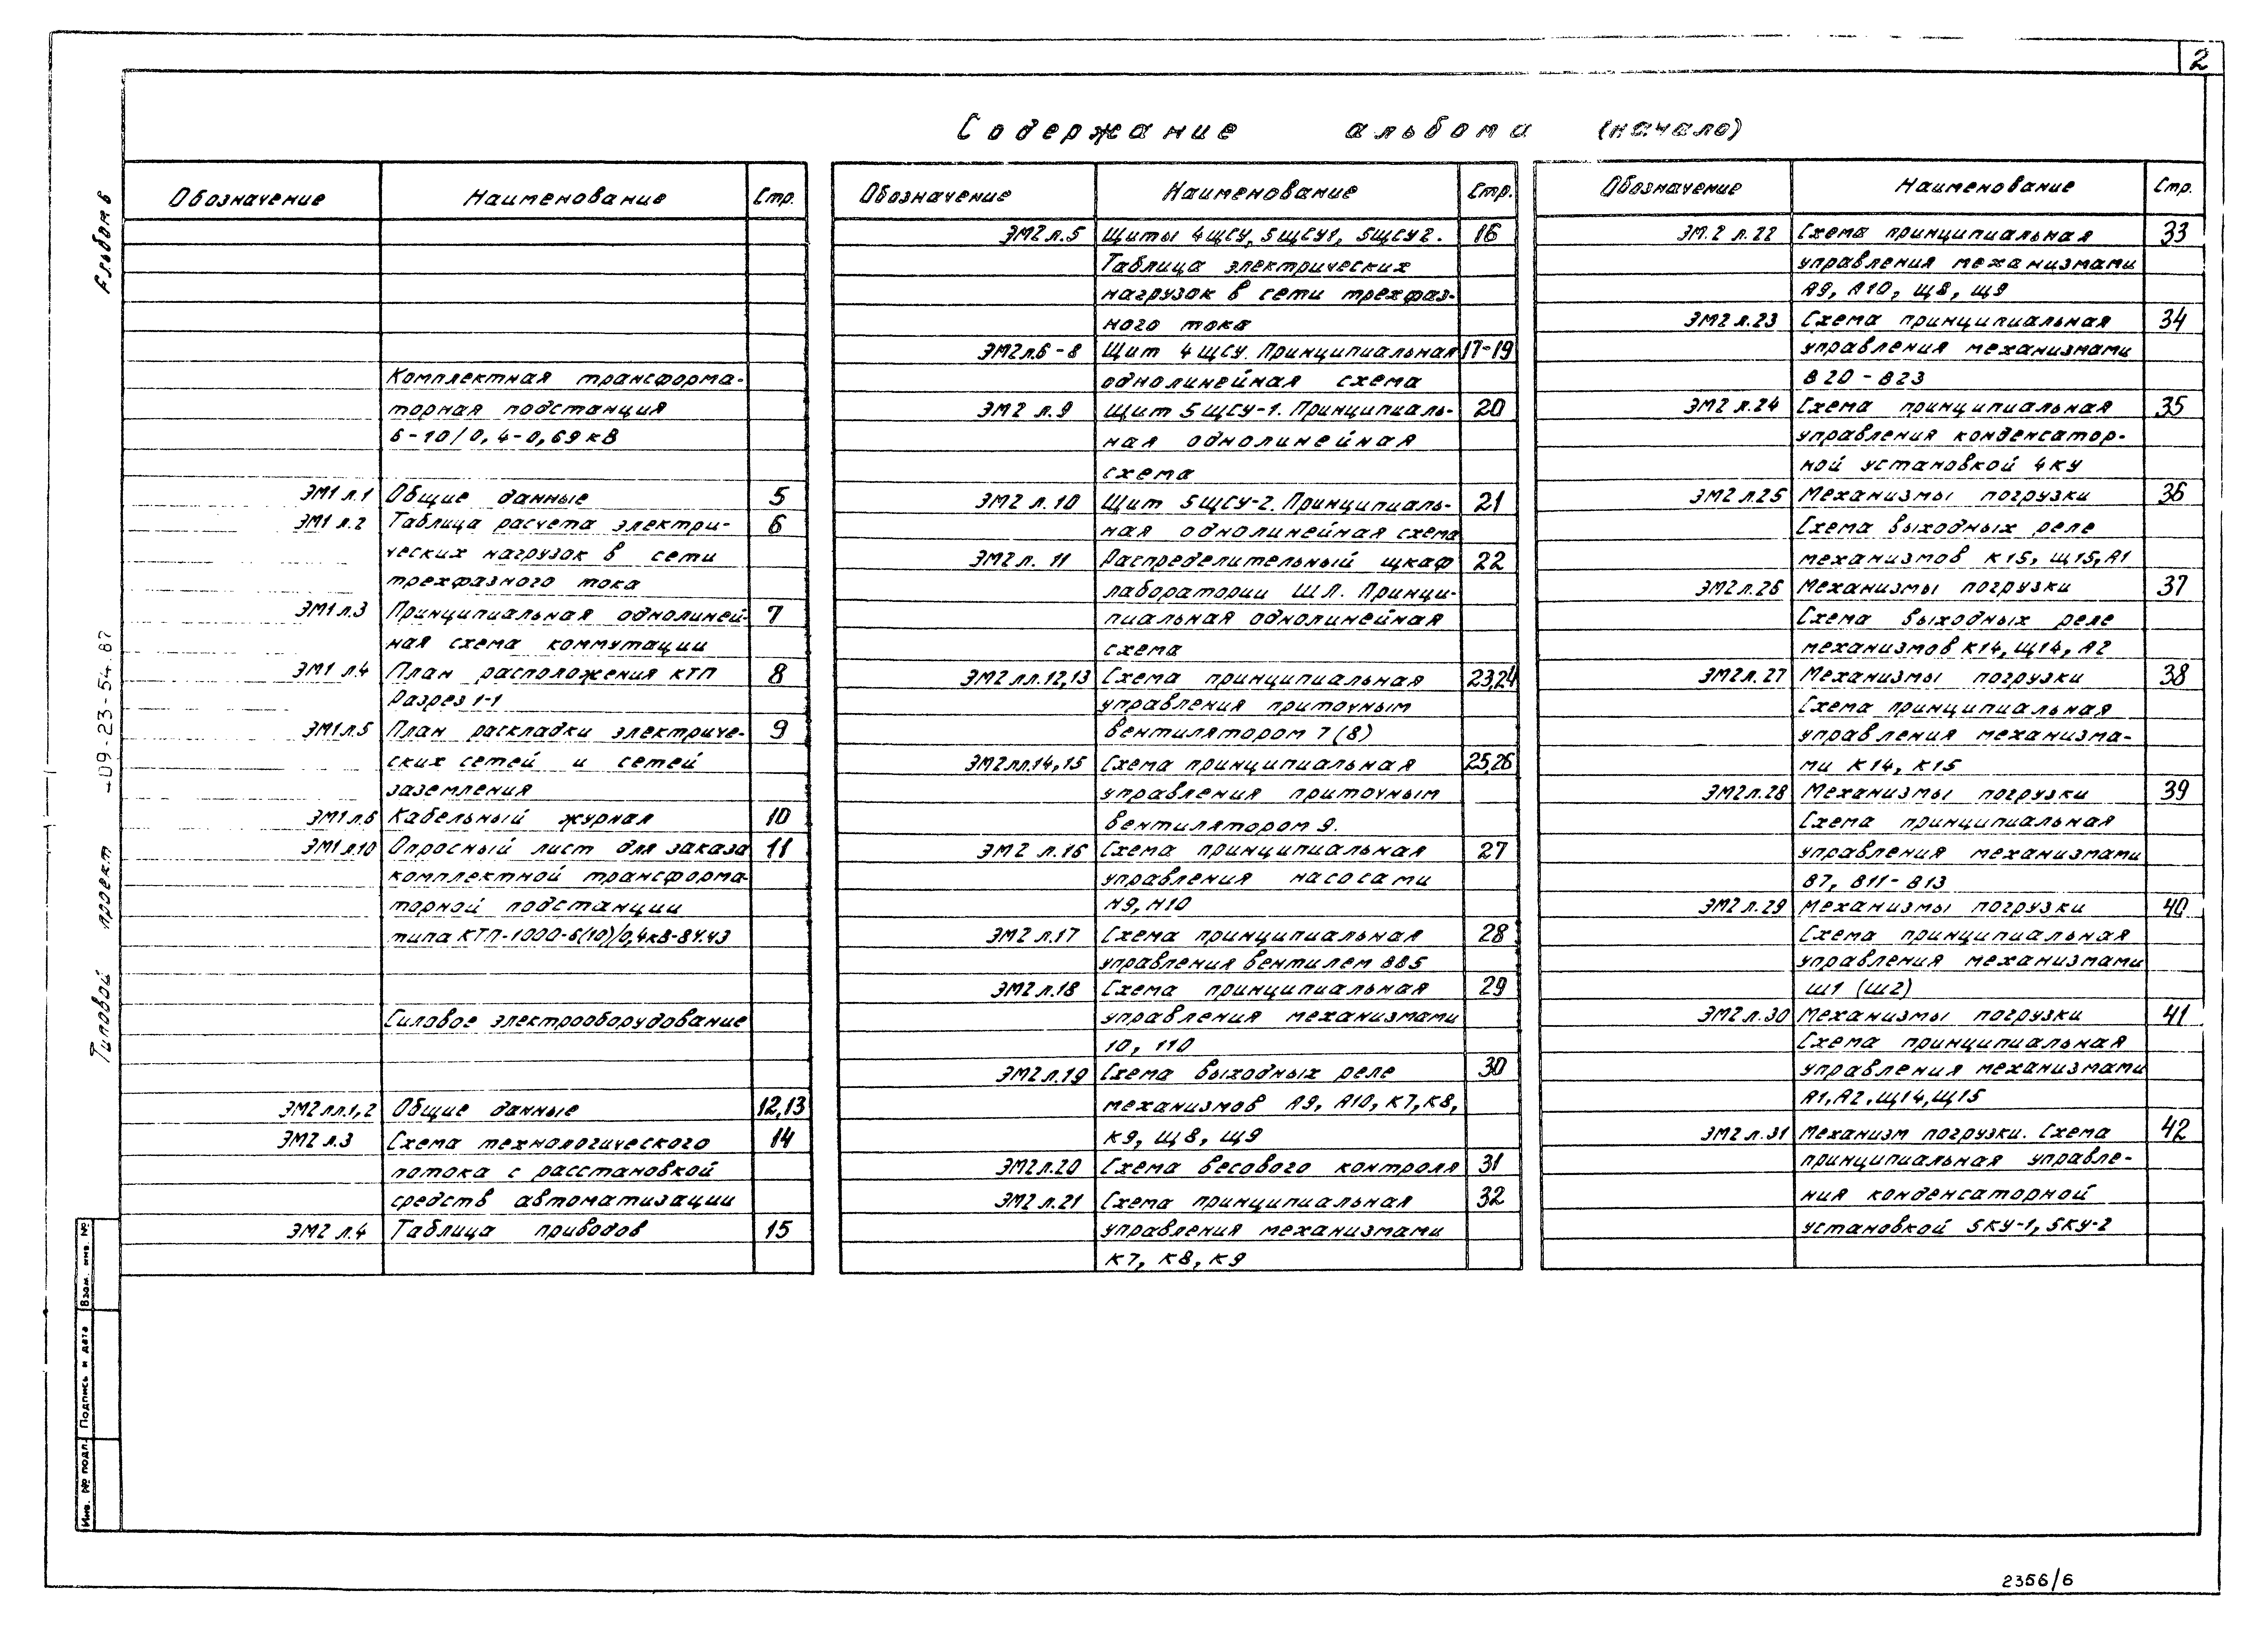 2
Содержание альбома (начало)
Альбом 6
Типовой проект 409-23-54.87
Обозначение Наименование Стр.
Комплектная трансформа-
торная подстанция
6-10/0,4-0,69кВ
ЭМ1 л.1 Общие данные 5
ЭМ1 л.2 Таблица расчета электри- 6
ческих нагрузок в сети
трехфазного тока
ЭМ1 л.3 Принципиальная однолиней- 7
ная схема коммутации
ЭМ1 л.4 План расположения КТП 8
Разрез 1-1
ЭМ1 л.5 План раскладки электриче- 9
ских сетей и сетей
заземления
ЭМ1 л.6 Кабельный журнал 10
ЭМ1 л.10 Опросный лист для заказа 11
комплектной трансформа-
торной подстанции
типа КТП-1000-6(10)/0,4кВ-84.У3
Силовое электрооборудование
ЭМ2 лл.1,2 Общие данные 12,13
ЭМ2 л.3 Схема технологического 14
потока с расстановкой
средств автоматизации
ЭМ2 л.4 Таблица приводов 15
Обозначение Наименование Стр.
ЭМ2 л.5 Щиты 4ЩСУ, 5ЩСУ1, 5ЩСУ2. 16
Таблица электрических
нагрузок в сети трехфаз-
ного тока
ЭМ2 л.6-8 Щит 4ЩСУ. Принципиальная 17-19
однолинейная схема
ЭМ2 л.9 Щит 5ЩСУ-1. Принципиаль- 20
ная однолинейная
схема
ЭМ2 л.10 Щит 5ЩСУ-2. Принципиаль- 21
ная однолинейная схема
ЭМ2 л. 11 Распределительный шкаф 22
лаборатории ШЛ. Принци-
пиальная однолинейная
схема
ЭМ2 лл.12,13 Схема принципиальная 23,24
управления приточным
вентилятором 7(8)
ЭМ2 лл.14,15 Схема принципиальная 25,26
управления приточным
вентилятором 9.
ЭМ2 л.16 Схема принципиальная 27
управления насосами
Н9, Н10
ЭМ2 л.17 Схема принципиальная 28
управления вентилем В85
ЭМ2 л.18 Схема принципиальная 29
управления механизмами
10, 110
ЭМ2 л.19 Схема выходных реле 30
механизмов А9, А10, К7, К8,
К9, Щ8, Щ9
ЭМ2 л.20 Схема весового контроля 31
ЭМ2 л.21 Схема принципиальная 32
управления механизмами
К7, К8, К9
Обозначение Наименование Стр.
ЭМ.2 л.22 Схема принципиальная 33
управления механизмами
А9, А10, Щ8, Щ9
ЭМ2 л.23 Схема принципиальная 34
управления механизмами
В20-В23
ЭМ2 л.24 Схема принципиальная 35
управления конденсатор-
ной установкой 4КУ
ЭМ2 л.25 Механизмы погрузки 36
Схема выходных реле
механизмов К15, Щ15, А1
ЭМ2 л.26 Механизмы погрузки 37
Схема выходных реле
механизмов К14, Щ14, А2
ЭМ2 л.27 Механизмы погрузки 38
Схема принципиальная
управления механизма-
ми К14, К15
ЭМ2 л.28 Механизмы погрузки 39
Схема принципиальная
управления механизмами
В7, В11-В13
ЭМ2 л.29 Механизмы погрузки 40
Схема принципиальная
управления механизмами
Ш1 (Ш2)
ЭМ2 л.30 Механизмы погрузки 41
Схема принципиальная
управления механизмами
А1, А2, Щ14, Щ15
ЭМ2 л.31 Механизм погрузки. Схема 42
принципиальная управле-
ния конденсаторной
установкой 5КУ-1, 5КУ-2
Инв. № подл. Подпись и дата Взам. инв. №
2356/6